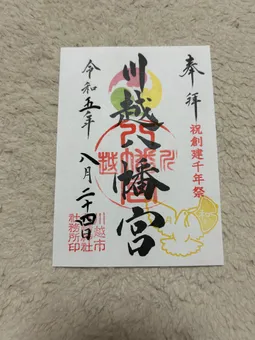 奉拝
祝創建千年祭
川越八幡宮
令和五年
八月二十四日
川越市
社務所印